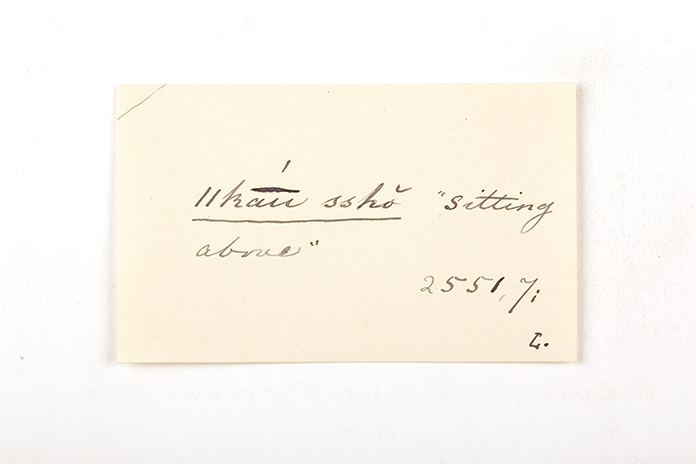 ǁkā́u sshŏ "sitting
above"
2551, 7;
L.